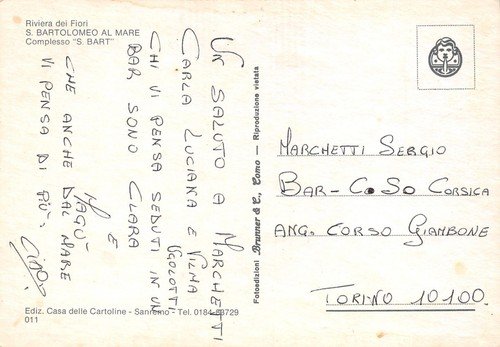 Riviera dei Fiori
S. BARTOLOMEO AL MARE
Complesso "S. BART"
UN SALUTO A MARCHETTI
CARLA LUCIANA E VILMA
UGOLOTTI
CHI VI PENSA SEDUTI IN UN
BAR SONO CLARA
E
MAGÙ
CHE ANCHE DAL MARE
VI PENSA DI PIÙ.
CIAO
Fotoedizioni Brunner & C., Como — Riproduzione vietata
MARCHETTI SERGIO
BAR - CoSo CORSICA
ANG. CORSO GIAMBONE
TORINO 10100.
Ediz. Casa delle Cartoline - Sanremo - Tel. 0184-83729
011